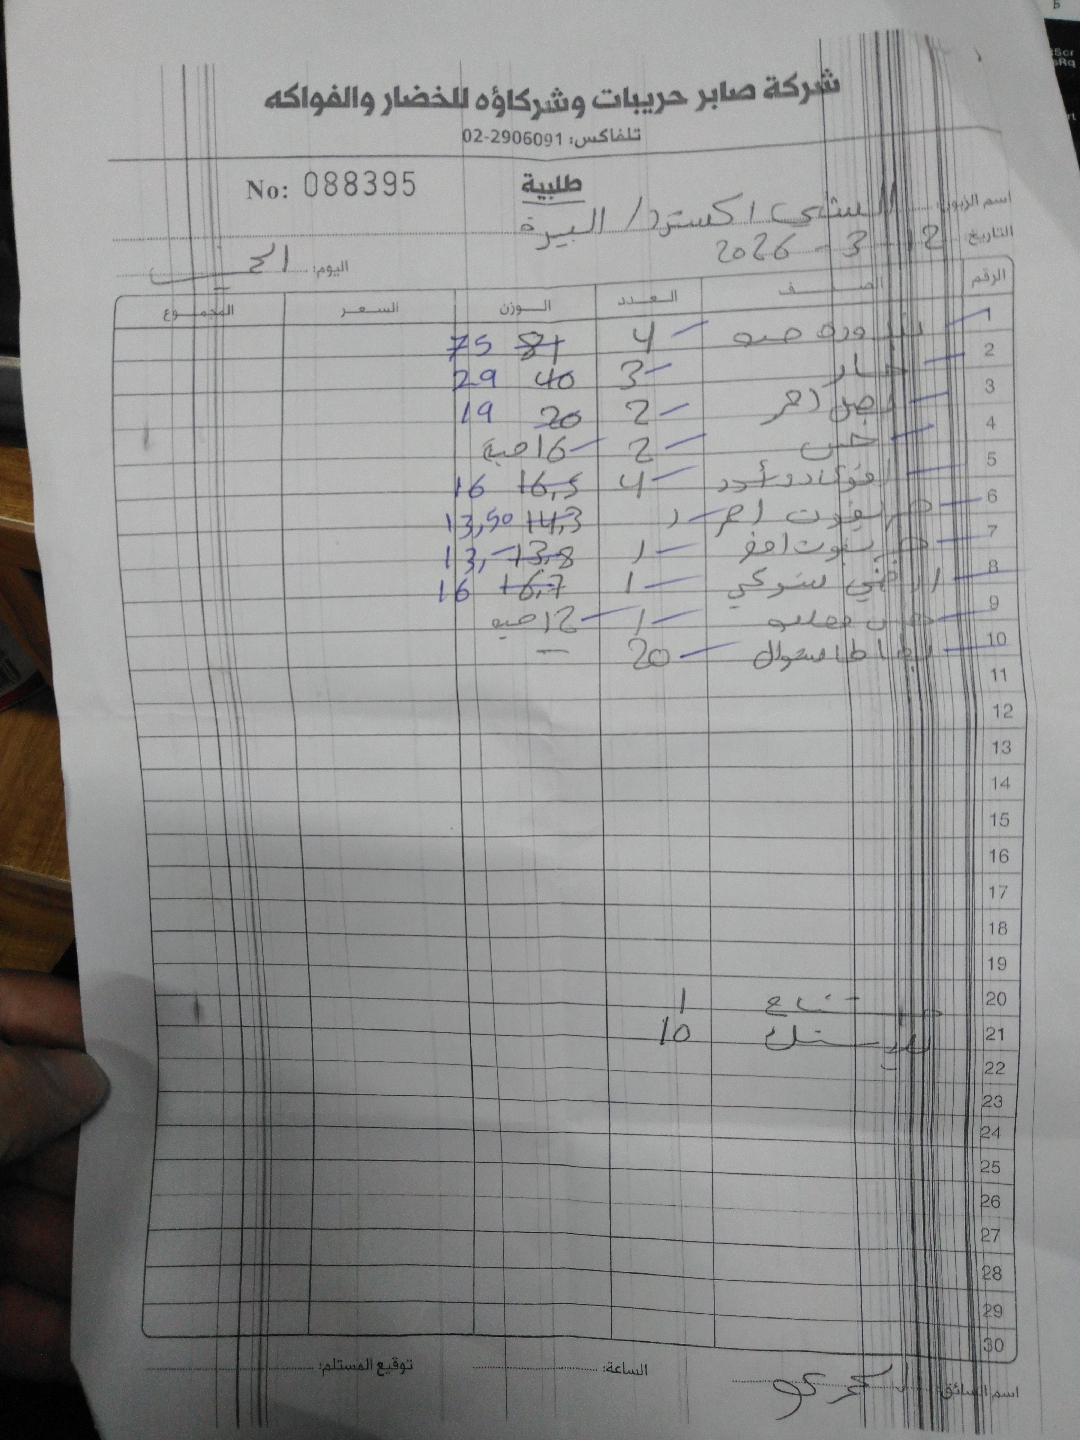 شركة صابر حريبات وشركاؤه للخضار والفواكه
تلفاكس: 02-2906091
No: 088395
طلبية
اسم الزبون: الشني اكسترا / البيرة
التاريخ 12 - 3 - 2026
اليوم:
الرقم الصنف العدد الوزن السعر المجموع
1 بندورة حبه 4 81 75
2 خيار 3 40 29
3 بصل احمر 2 20 19
4 خس 2 16 حبة
5 افوكادو 4 16,5 16
6 احمر 14,3 13,50
7 1 13,8 13,
8 1 16,7 16
9 1 12 حبه
10 بطاطا شوال 20 —
11
12
13
14
15
16
17
18
19
20 1
21 10
22
23
24
25
26
27
28
29
30
اسم السائق: الساعة: توقيع المستلم: